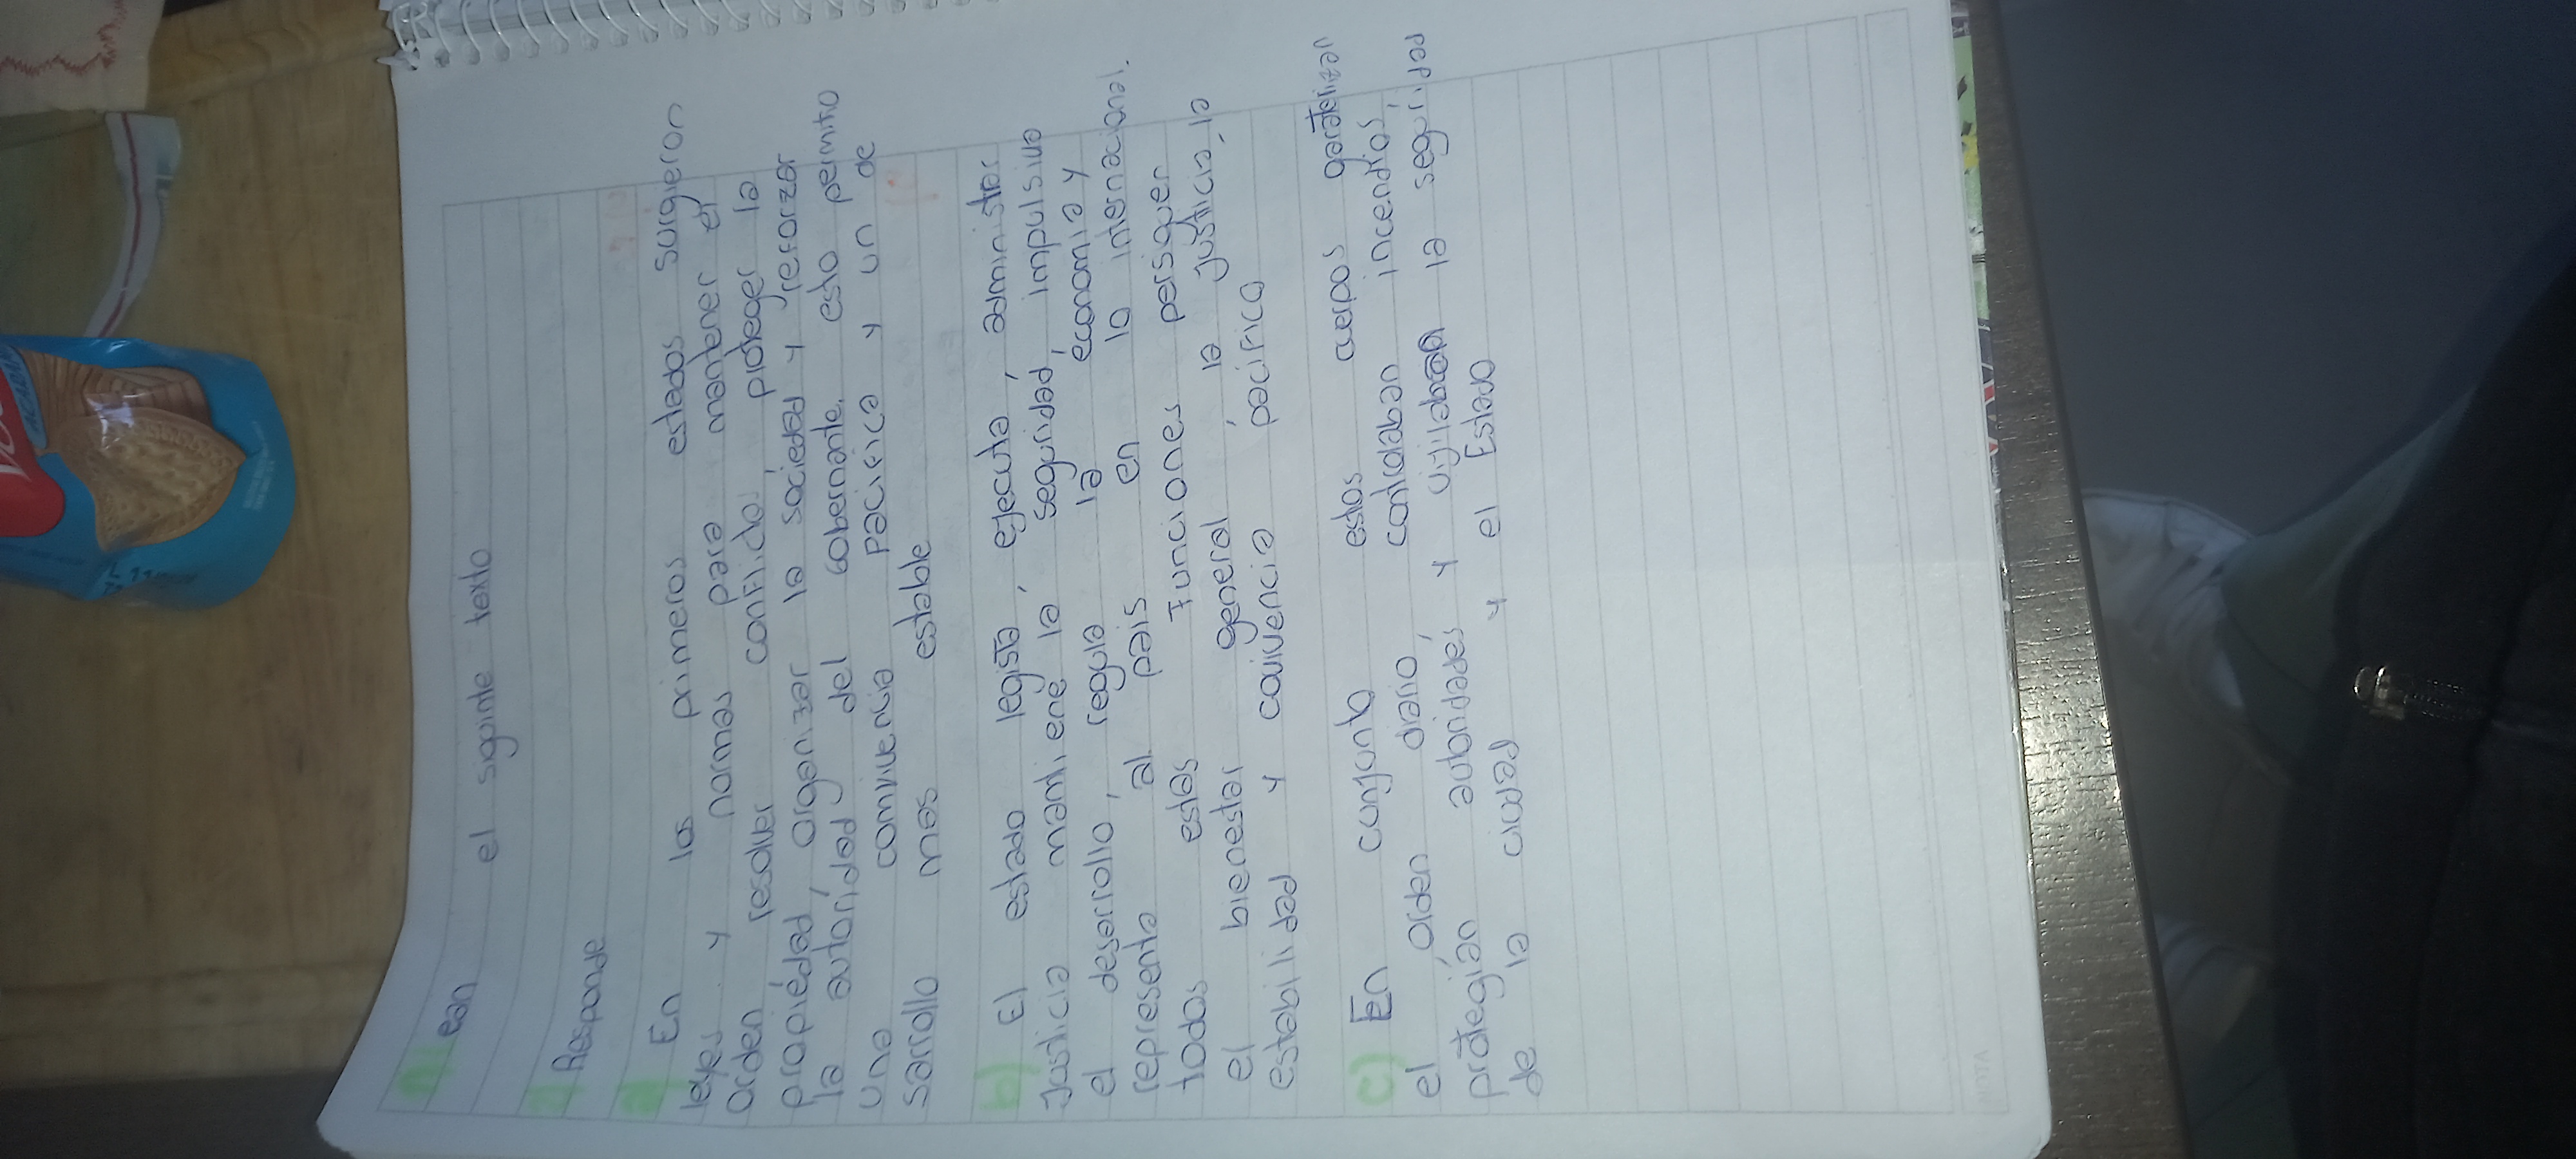 Lean el siguinte texto
Responde
a) En los primeros estados surgieron
leyes y normas para mantener el
orden resolver conflictos, proteger la
propiédad, organizar la sociedad y reforzar
la autoridad y del gobernante, esto permitio
una convivencia pacifica y un de
sarrollo mas estable
b) El estado legista, ejecuta, administrar
Justicia mantiene la seguridad, impulsiva
el desarrollo, regula la economia y
representa al pais en lo internacional.
todos estas funciones persiguen
el bienestar general, la justicia, la
estabilidad y convivencia pacifica
c) En conjunto estos cuerpos
el orden diario controlaban incendios,
protegían autoridades y vijilaban la seguridad
de la ciudad y el Estado